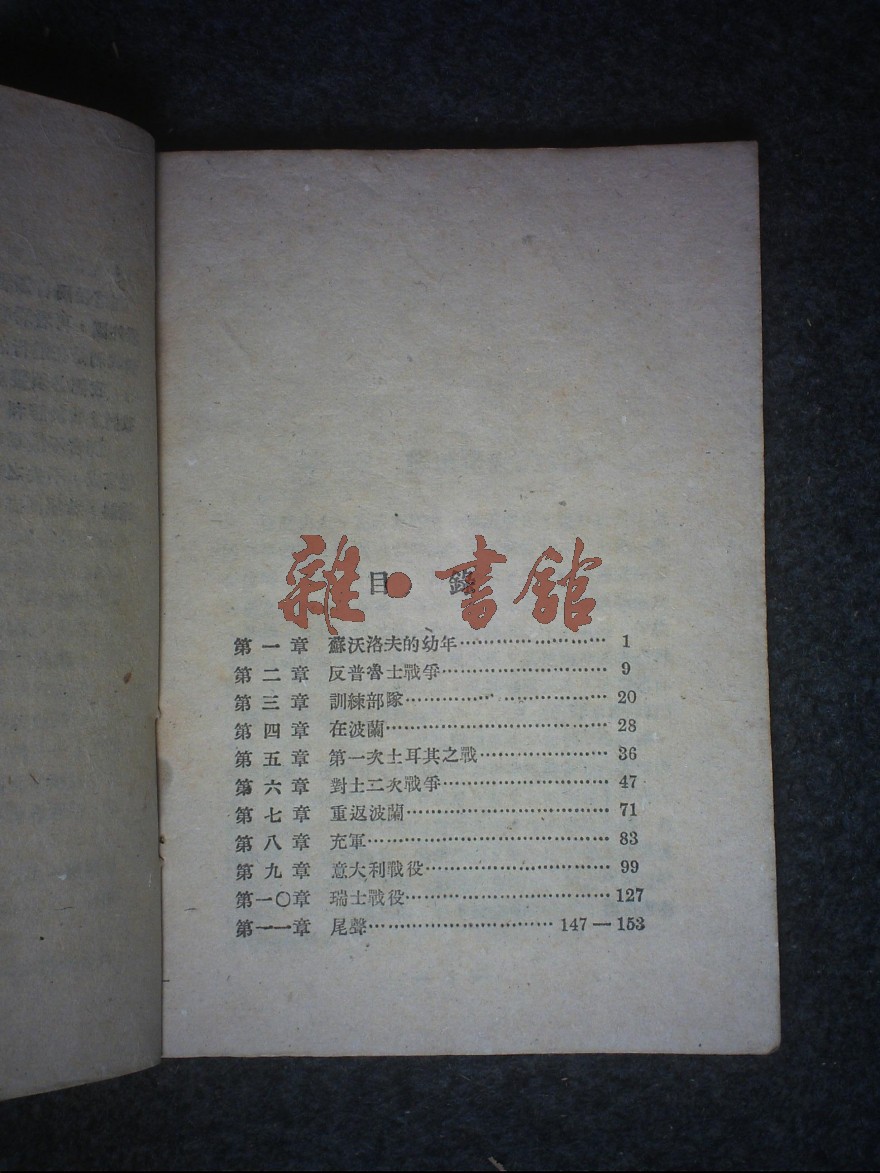 目錄
雜·書館
第一章 蘇沃洛夫的幼年…………………… 1
第二章 反普魯士戰爭……………………… 9
第三章 訓練部隊…………………………… 20
第四章 在波蘭……………………………… 28
第五章 第一次土耳其之戰………………… 36
第六章 對土二次戰爭……………………… 47
第七章 重返波蘭…………………………… 71
第八章 充軍………………………………… 83
第九章 意大利戰役………………………… 99
第一〇章 瑞士戰役………………………… 127
第一一章 尾聲………………………… 147—153